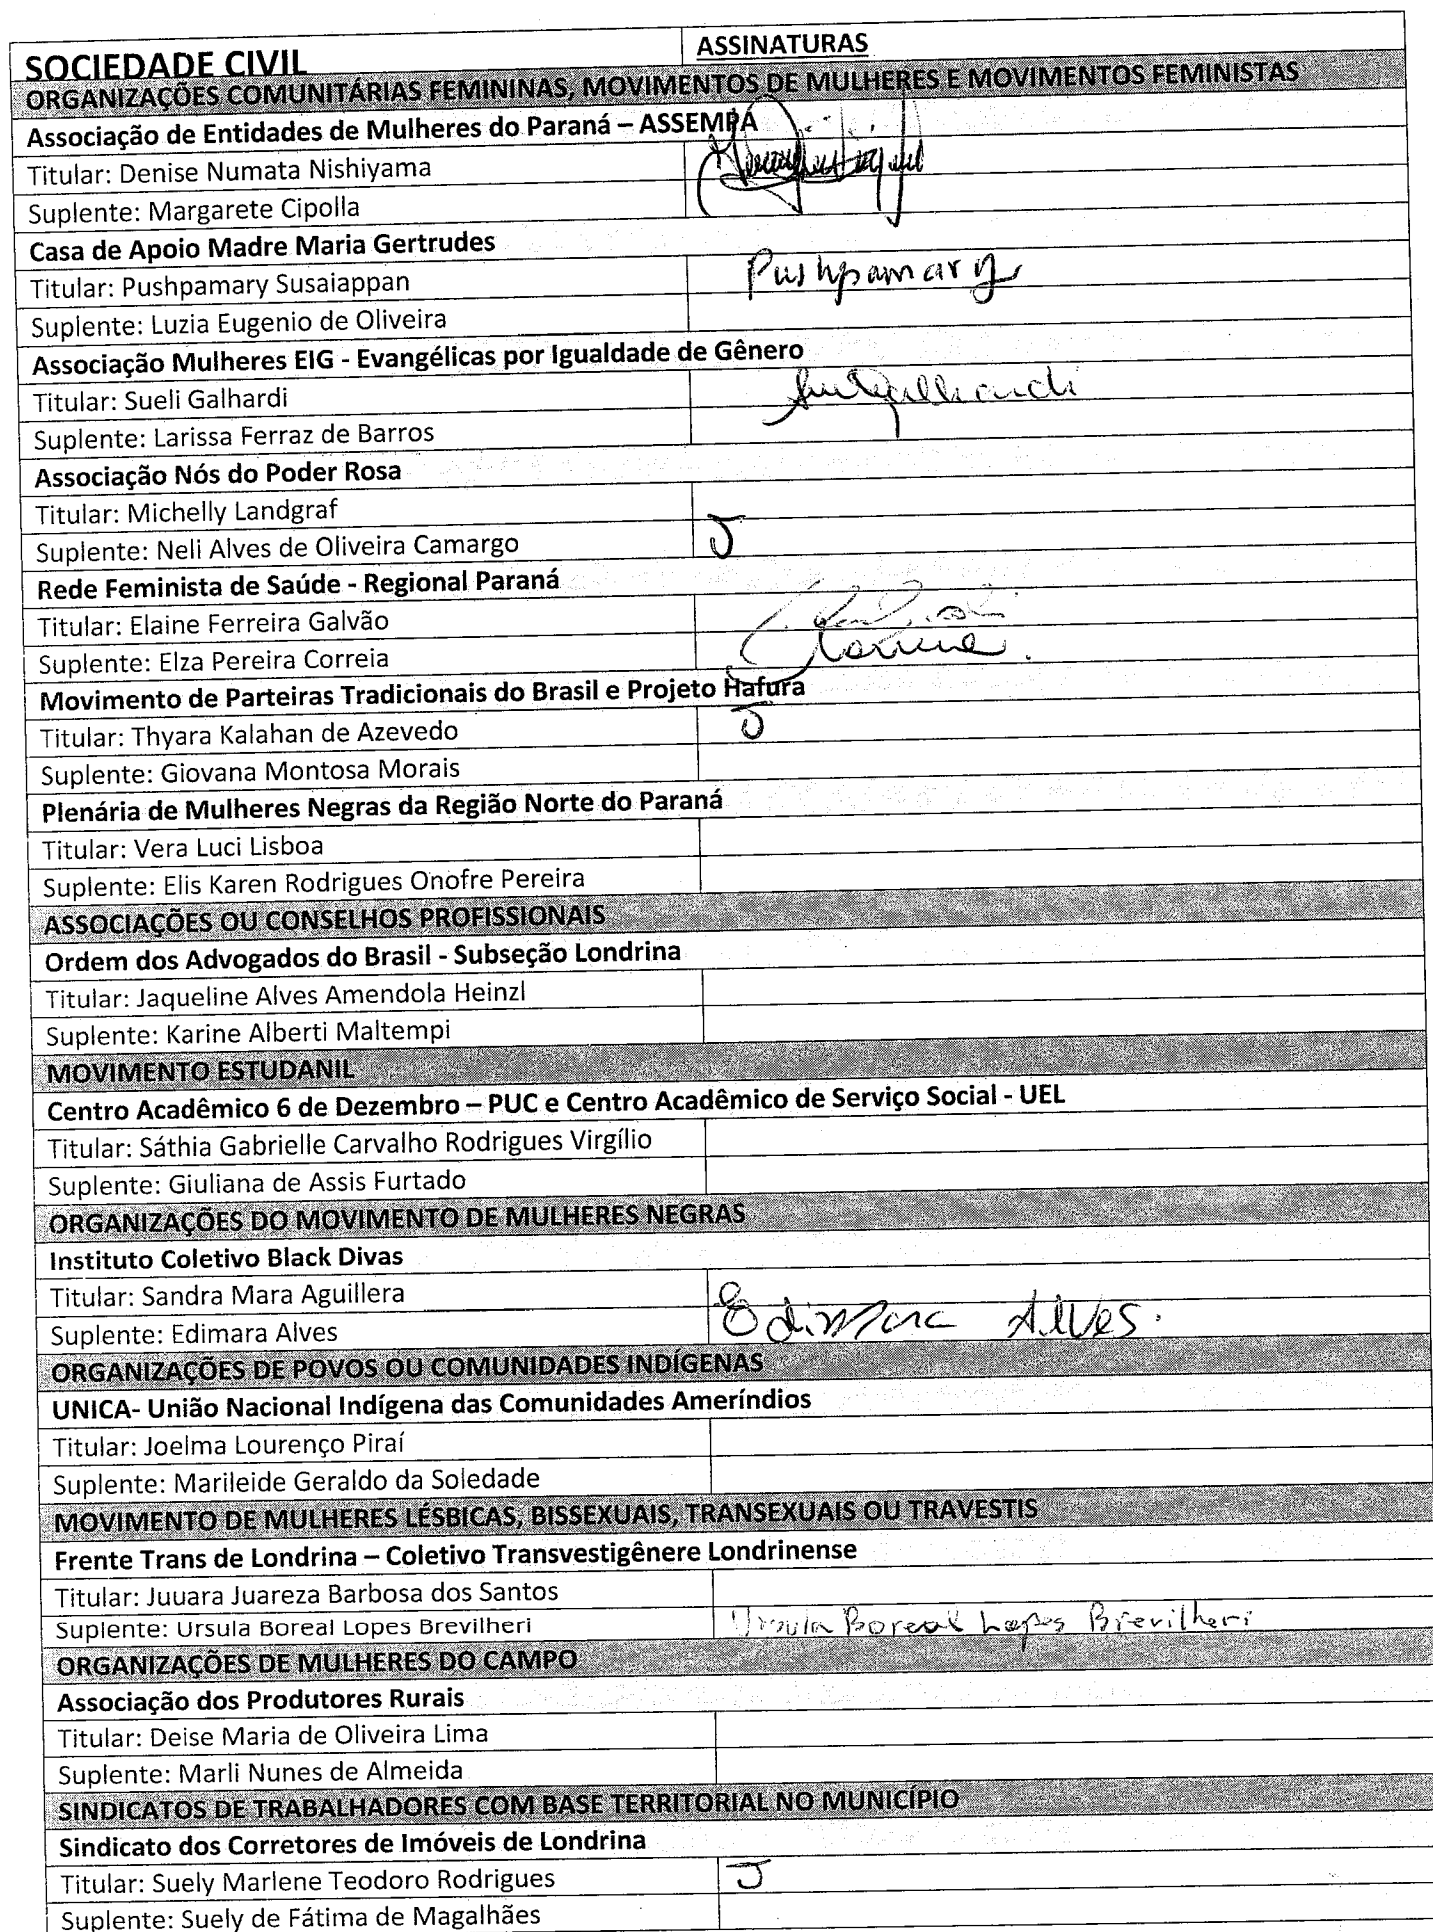 SOCIEDADE CIVIL
ASSINATURAS
ORGANIZAÇÕES COMUNITÁRIAS FEMININAS, MOVIMENTOS DE MULHERES E MOVIMENTOS FEMINISTAS
Associação de Entidades de Mulheres do Paraná – ASSEMPA
Titular: Denise Numata Nishiyama
Suplente: Margarete Cipolla
Casa de Apoio Madre Maria Gertrudes
Titular: Pushpamary Susaiappan Pushpamary
Suplente: Luzia Eugenio de Oliveira
Associação Mulheres EIG - Evangélicas por Igualdade de Gênero
Titular: Sueli Galhardi
Suplente: Larissa Ferraz de Barros
Associação Nós do Poder Rosa
Titular: Michelly Landgraf
Suplente: Neli Alves de Oliveira Camargo J
Rede Feminista de Saúde - Regional Paraná
Titular: Elaine Ferreira Galvão
Suplente: Elza Pereira Correia
Movimento de Parteiras Tradicionais do Brasil e Projeto Hafura
Titular: Thyara Kalahan de Azevedo J
Suplente: Giovana Montosa Morais
Plenária de Mulheres Negras da Região Norte do Paraná
Titular: Vera Luci Lisboa
Suplente: Elis Karen Rodrigues Onofre Pereira
ASSOCIAÇÕES OU CONSELHOS PROFISSIONAIS
Ordem dos Advogados do Brasil - Subseção Londrina
Titular: Jaqueline Alves Amendola Heinzl
Suplente: Karine Alberti Maltempi
MOVIMENTO ESTUDANIL
Centro Acadêmico 6 de Dezembro – PUC e Centro Acadêmico de Serviço Social - UEL
Titular: Sáthia Gabrielle Carvalho Rodrigues Virgílio
Suplente: Giuliana de Assis Furtado
ORGANIZAÇÕES DO MOVIMENTO DE MULHERES NEGRAS
Instituto Coletivo Black Divas
Titular: Sandra Mara Aguillera
Suplente: Edimara Alves Edimara Alves.
ORGANIZAÇÕES DE POVOS OU COMUNIDADES INDÍGENAS
UNICA- União Nacional Indígena das Comunidades Ameríndios
Titular: Joelma Lourenço Piraí
Suplente: Marileide Geraldo da Soledade
MOVIMENTO DE MULHERES LÉSBICAS, BISSEXUAIS, TRANSEXUAIS OU TRAVESTIS
Frente Trans de Londrina – Coletivo Transvestigênere Londrinense
Titular: Juuara Juareza Barbosa dos Santos
Suplente: Ursula Boreal Lopes Brevilheri Ursula Boreal Lopes Brevilheri
ORGANIZAÇÕES DE MULHERES DO CAMPO
Associação dos Produtores Rurais
Titular: Deise Maria de Oliveira Lima
Suplente: Marli Nunes de Almeida
SINDICATOS DE TRABALHADORES COM BASE TERRITORIAL NO MUNICÍPIO
Sindicato dos Corretores de Imóveis de Londrina
Titular: Suely Marlene Teodoro Rodrigues J
Suplente: Suely de Fátima de Magalhães